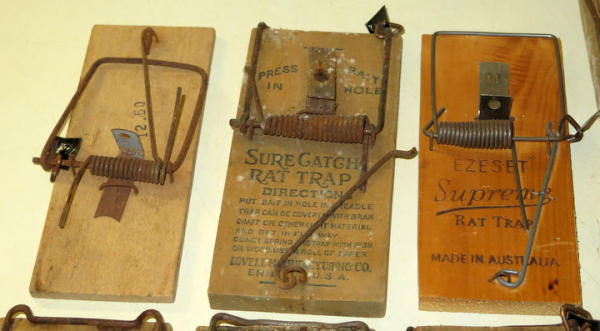 12.50
PRESS
IN
BAIT
HOLE
SURE CATCH
RAT TRAP
DIRECTIONS
PUT BAIT IN HOLE IN TREADLE
TRAP CAN BE COVERED WITH BRAN
CHAFF OR OTHER LIGHT MATERIAL
AND SET IN RUN WAY.
SPRING TRAP WITH IRON
OR WOOD. USE A ROLL OF PAPER
LOVELL MANUFACTURING CO.
ERIE, PA. U.S.A.
EZESET
Supreme
RAT TRAP
MADE IN AUSTRALIA